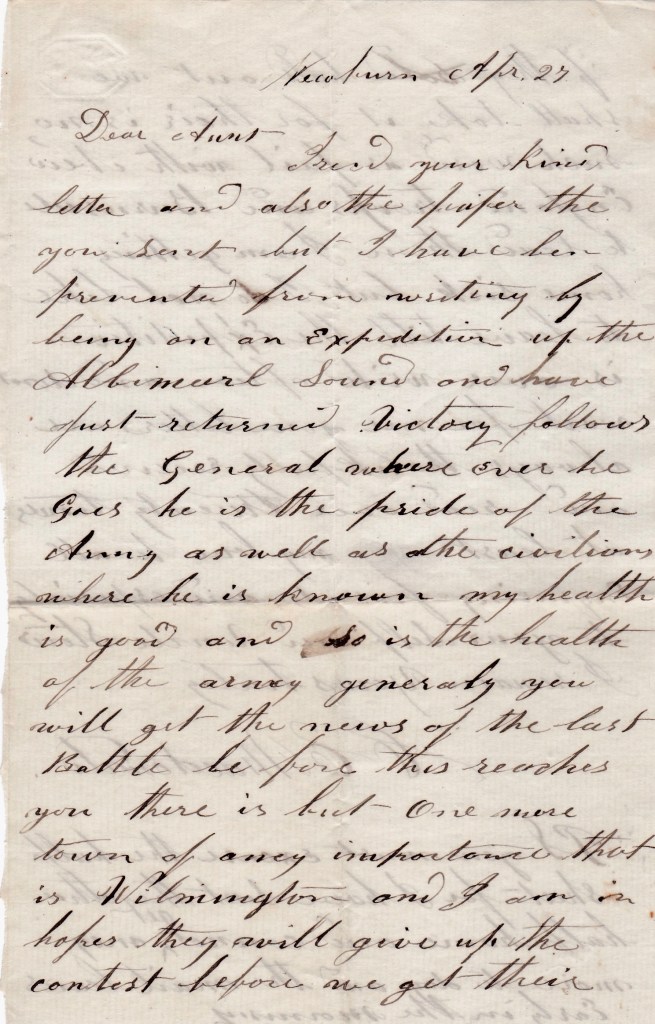 Newburn Apr. 27
Dear Aunt
I recd your kind
letter and also the paper the
you sent but I have ben
prevented from writing by
being on an Expedition up the
Albimearl Sound and have
just returned Victory follows
the General where ever he
Goes he is the pride of the
Army as well as the civilions
where he is known my health
is good and so is the health
of the army generaly you
will get the news of the last
Battle be fore this reaches
you there is but One more
town of aney importance that
is Wilmington and I am in
hopes they will give up the
contest before we get their